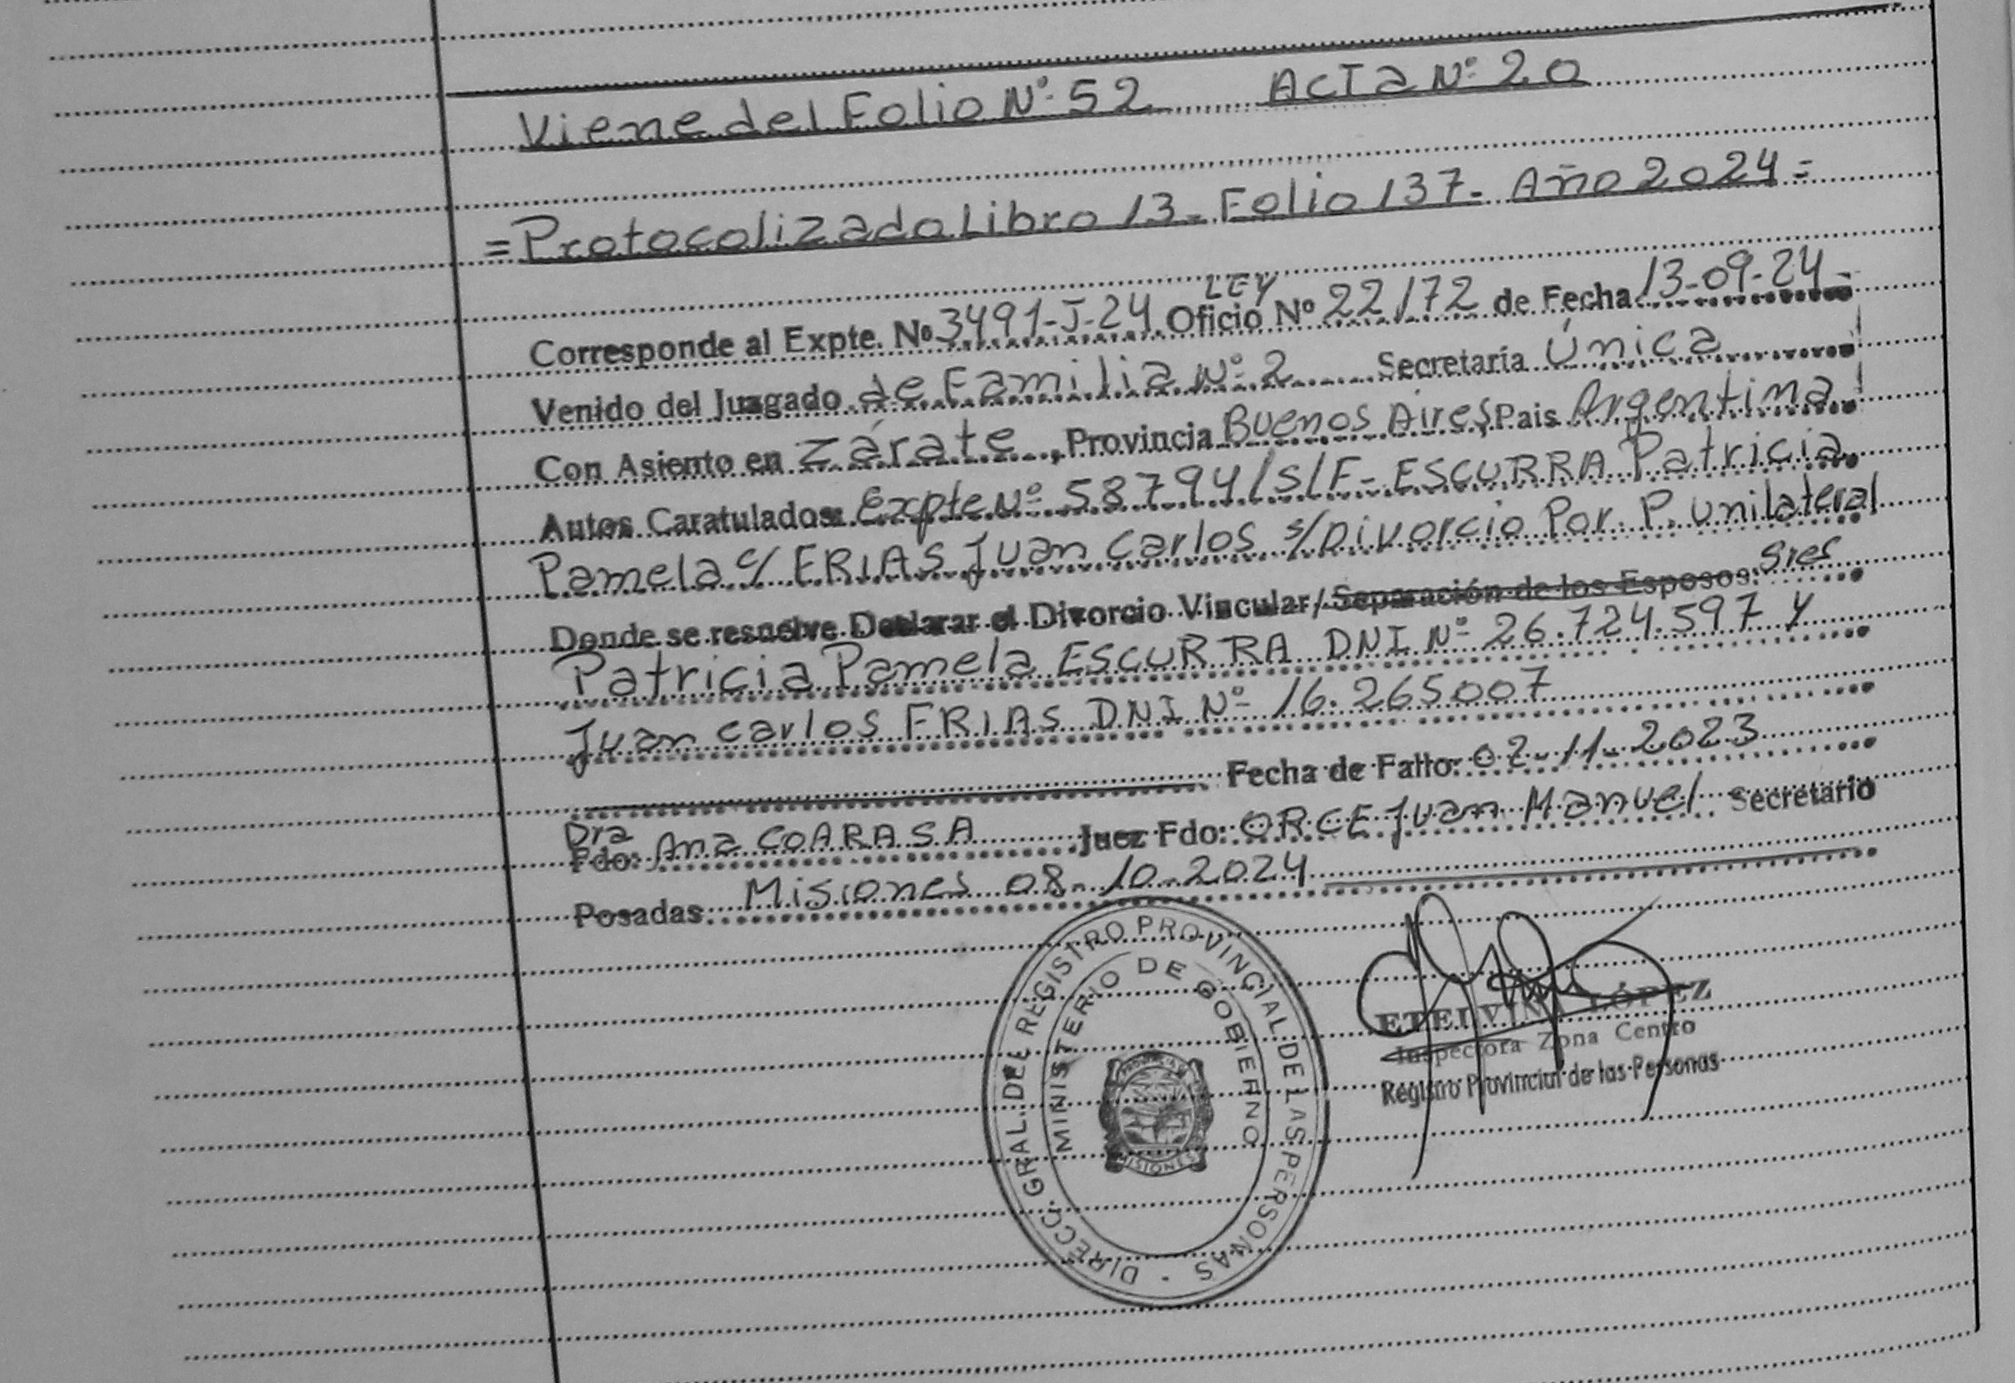 Viene del Folio Nº 52 ACTA Nº 20
= Protocolizado Libro 13 - Folio 137 - Año 2024 =
LEY
Corresponde al Expte. Nº 3491-J-24 Oficio Nº 22/72 de Fecha 13-09-24-
Venido del Juzgado de Familia Nº 2 Secretaría Única
Con Asiento en Zárate, Provincia Buenos Aires, Pais Argentina
Autos Caratulados: Expte Nº 58794/S/F- ESCURRA Patricia
Pamela c/ FRIAS Juan Carlos s/Divorcio Por. P. Unilateral
Donde se resuelve Declarar el Divorcio Vincular/Separación de los Esposos: Sres
Patricia Pamela ESCURRA DNI Nº 26.724.597 y
Juan Carlos FRIAS DNI Nº 16.265007
Fecha de Fallo: 02-11-2023
Dra
Fdo: Ana COARASA Juez Fdo: ORCE Juan Manuel Secretario
Posadas: Misiones 08-10-2024
DIRECC. GRAL. DEL REGISTRO PROVINCIAL DE LAS PERSONAS -
MINISTERIO DE GOBIERNO
PROVINCIA DE
MISIONES
ETELVINA LÓPEZ
Inspectora Zona Centro
Registro Provincial de las Personas